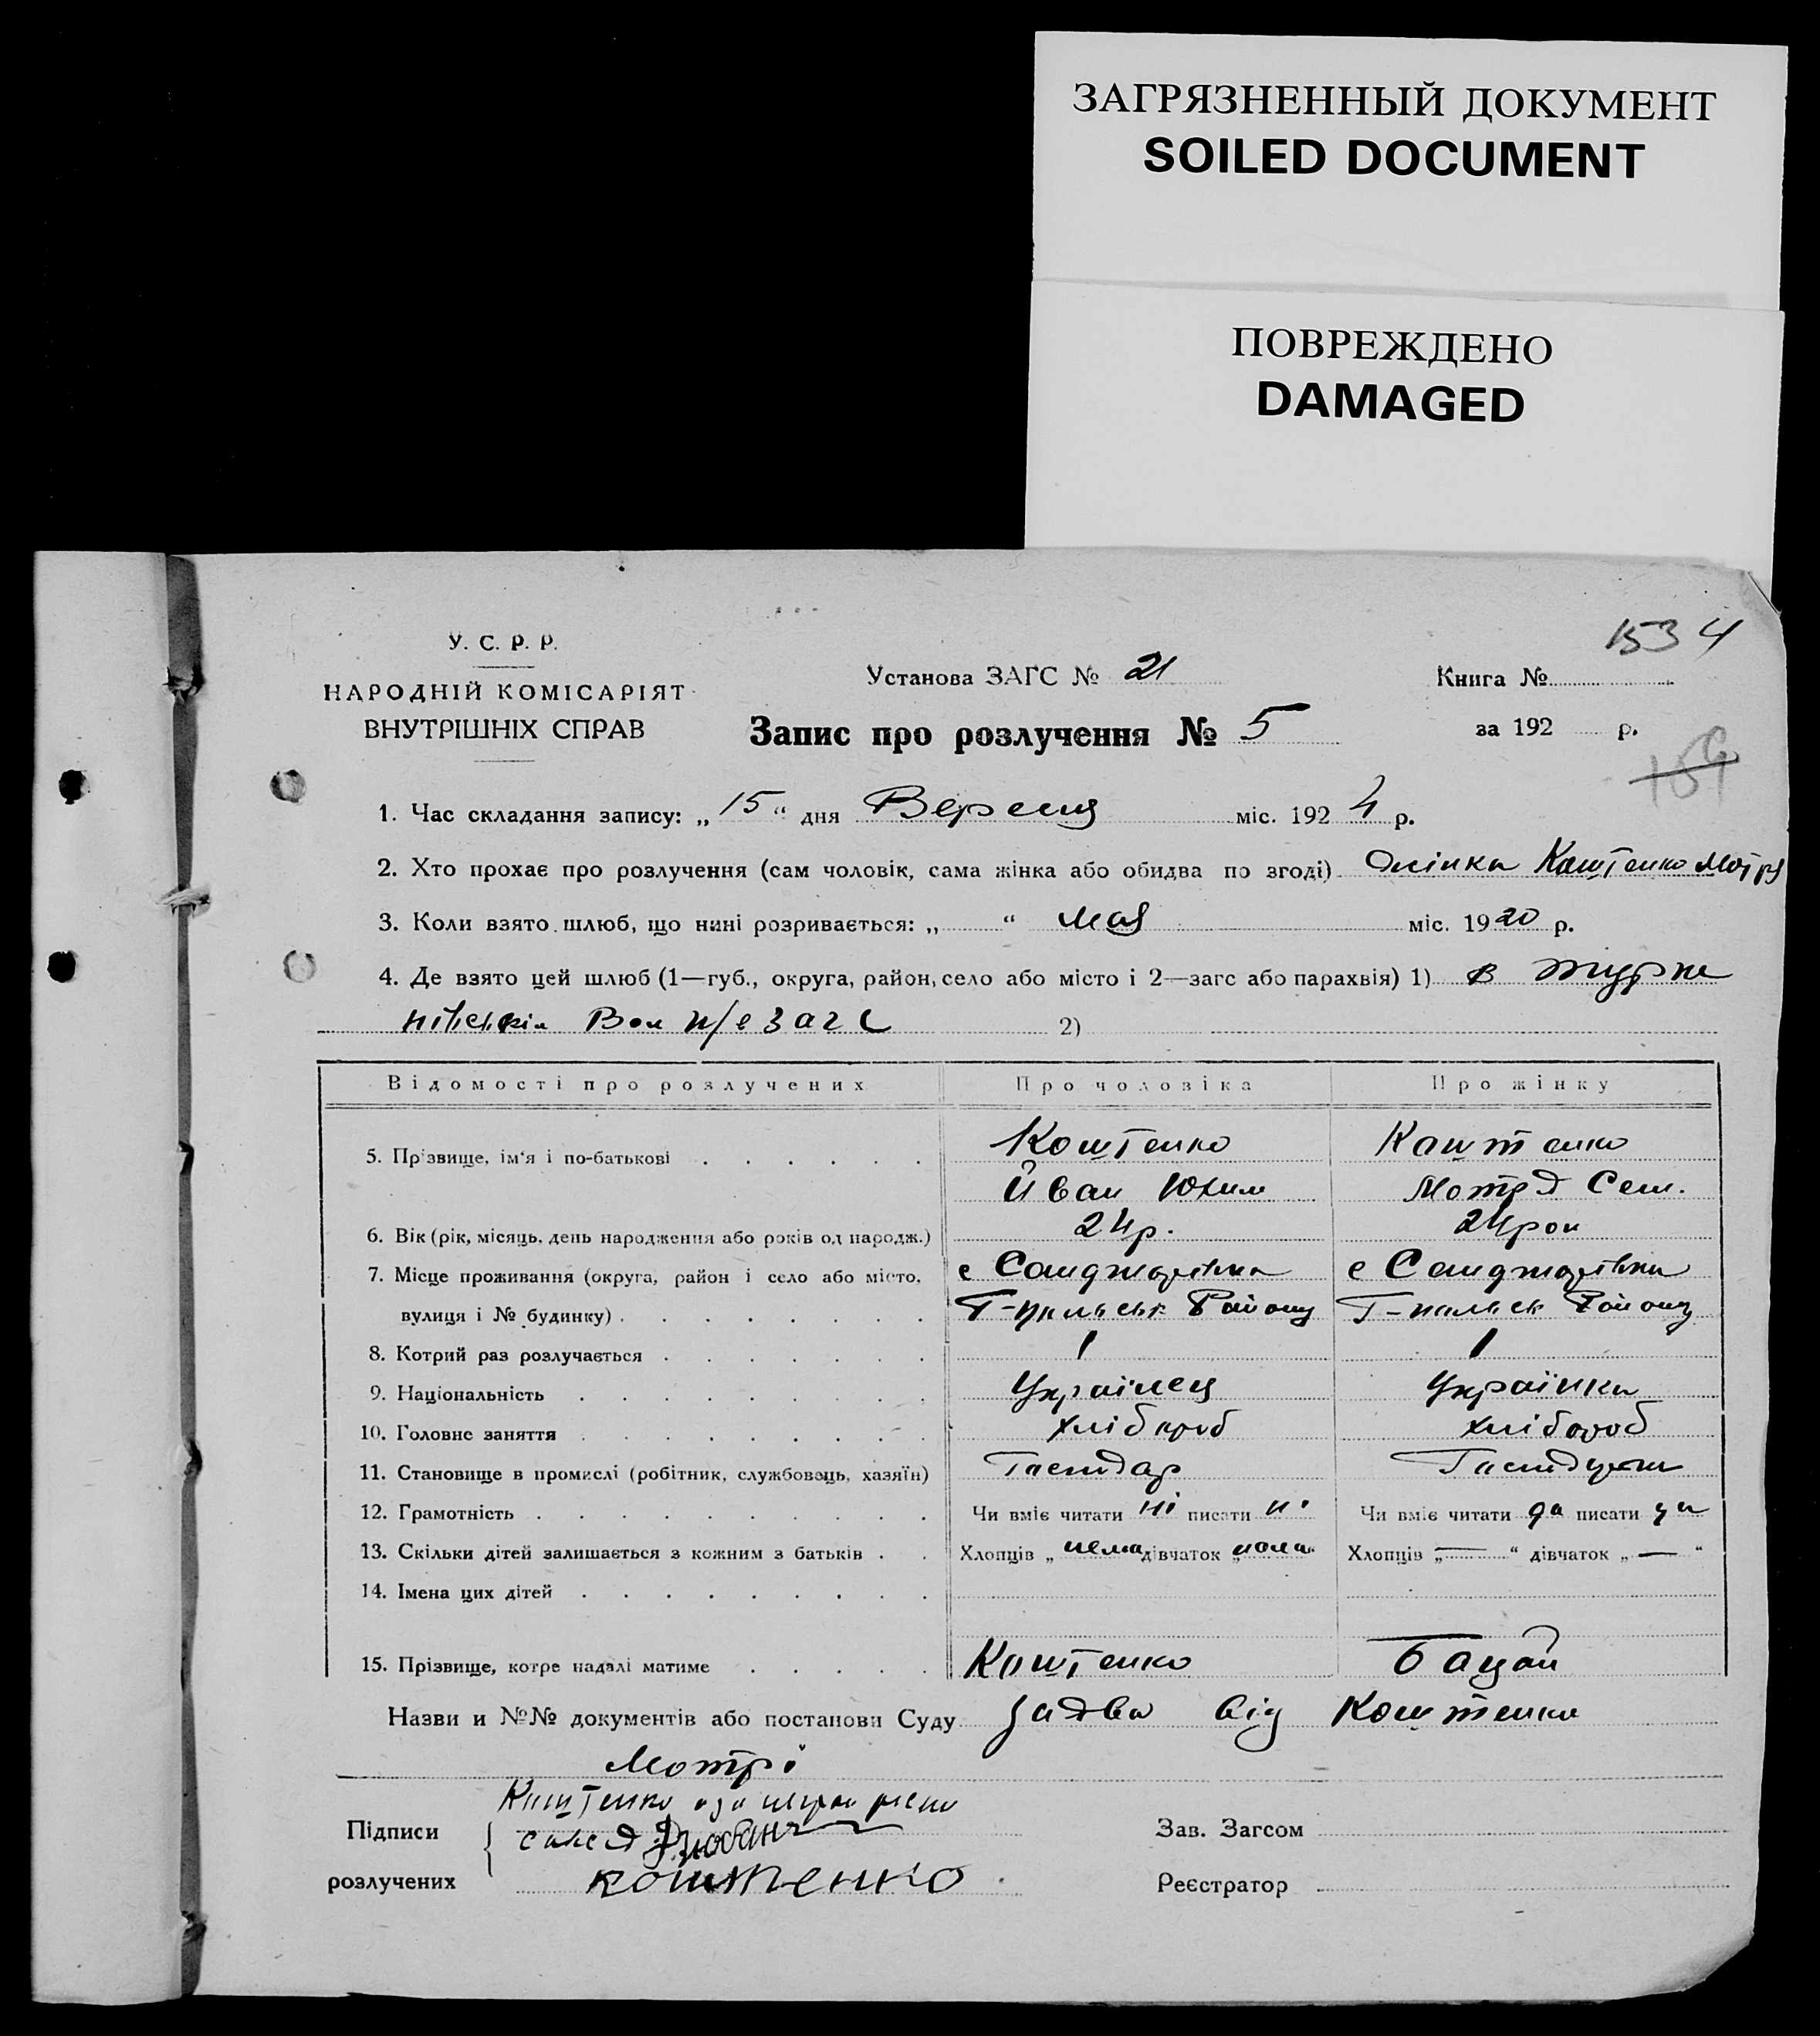 ЗАГРЯЗНЕННЫЙ ДОКУМЕНТ
SOILED DOCUMENT
ПОВРЕЖДЕНО
DAMAGED
1534
У. С. Р. Р.
НАРОДНІЙ КОМІСАРІЯТ
ВНУТРІШНІХ СПРАВ
Установа ЗАГС № 21
Книга №
Запис про розлучення № 5
за 192 р.
1. Час складання запису: „ 15 “ дня Вересня міс. 1924 р.
2. Хто прохає про розлучення (сам чоловік, сама жінка або обидва по згоді) Жінка Коштенко Мотря
3. Коли взято шлюб, що нині розривається: „ “ мая міс. 1920 р.
4. Де взято цей шлюб (1—губ., округа, район, село або місто і 2—загс або парахвія) 1) в
Вол загс 2)
Відомості про розлучених Про чоловіка Про жінку
5. Прізвище, ім'я і по-батькові Коштенко Коштенко
Йван Юхим Мотря Сем.
6. Вік (рік, місяць, день народження або років од народж.) 24 р. 24 рок
7. Місце проживання (округа, район і село або місто, с с
вулиця і № будинку) Району Району
8. Котрий раз розлучається 1 1
9. Національність Українец Українка
10. Головне заняття хлібороб хлібороб
11. Становище в промислі (робітник, службовець, хазяїн)
12. Грамотність Чи вміє читати ні писати ні Чи вміє читати да писати да
13. Скільки дітей залишається з кожним з батьків Хлопців „ нема дівчаток „ нема “ Хлопців „ — “ дівчаток „ — “
14. Імена цих дітей
15. Прізвище, котре надалі матиме Коштенко Бацай
Назви и №№ документів або постанови Суду заява від Коштенко
Мотрі
Коштенко
Підписи Зав. Загсом
коштенко
розлучених Реєстратор